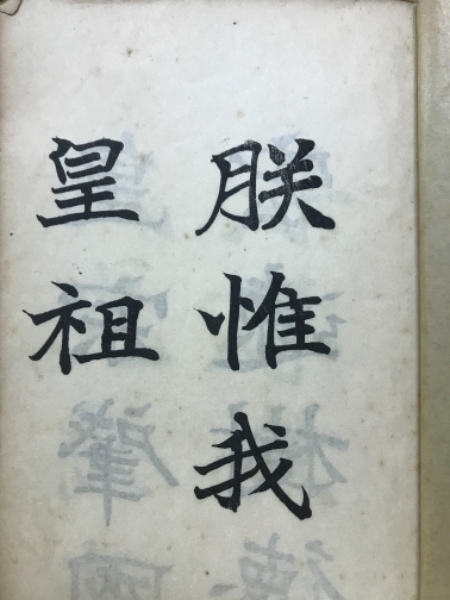 朕惟我
皇祖